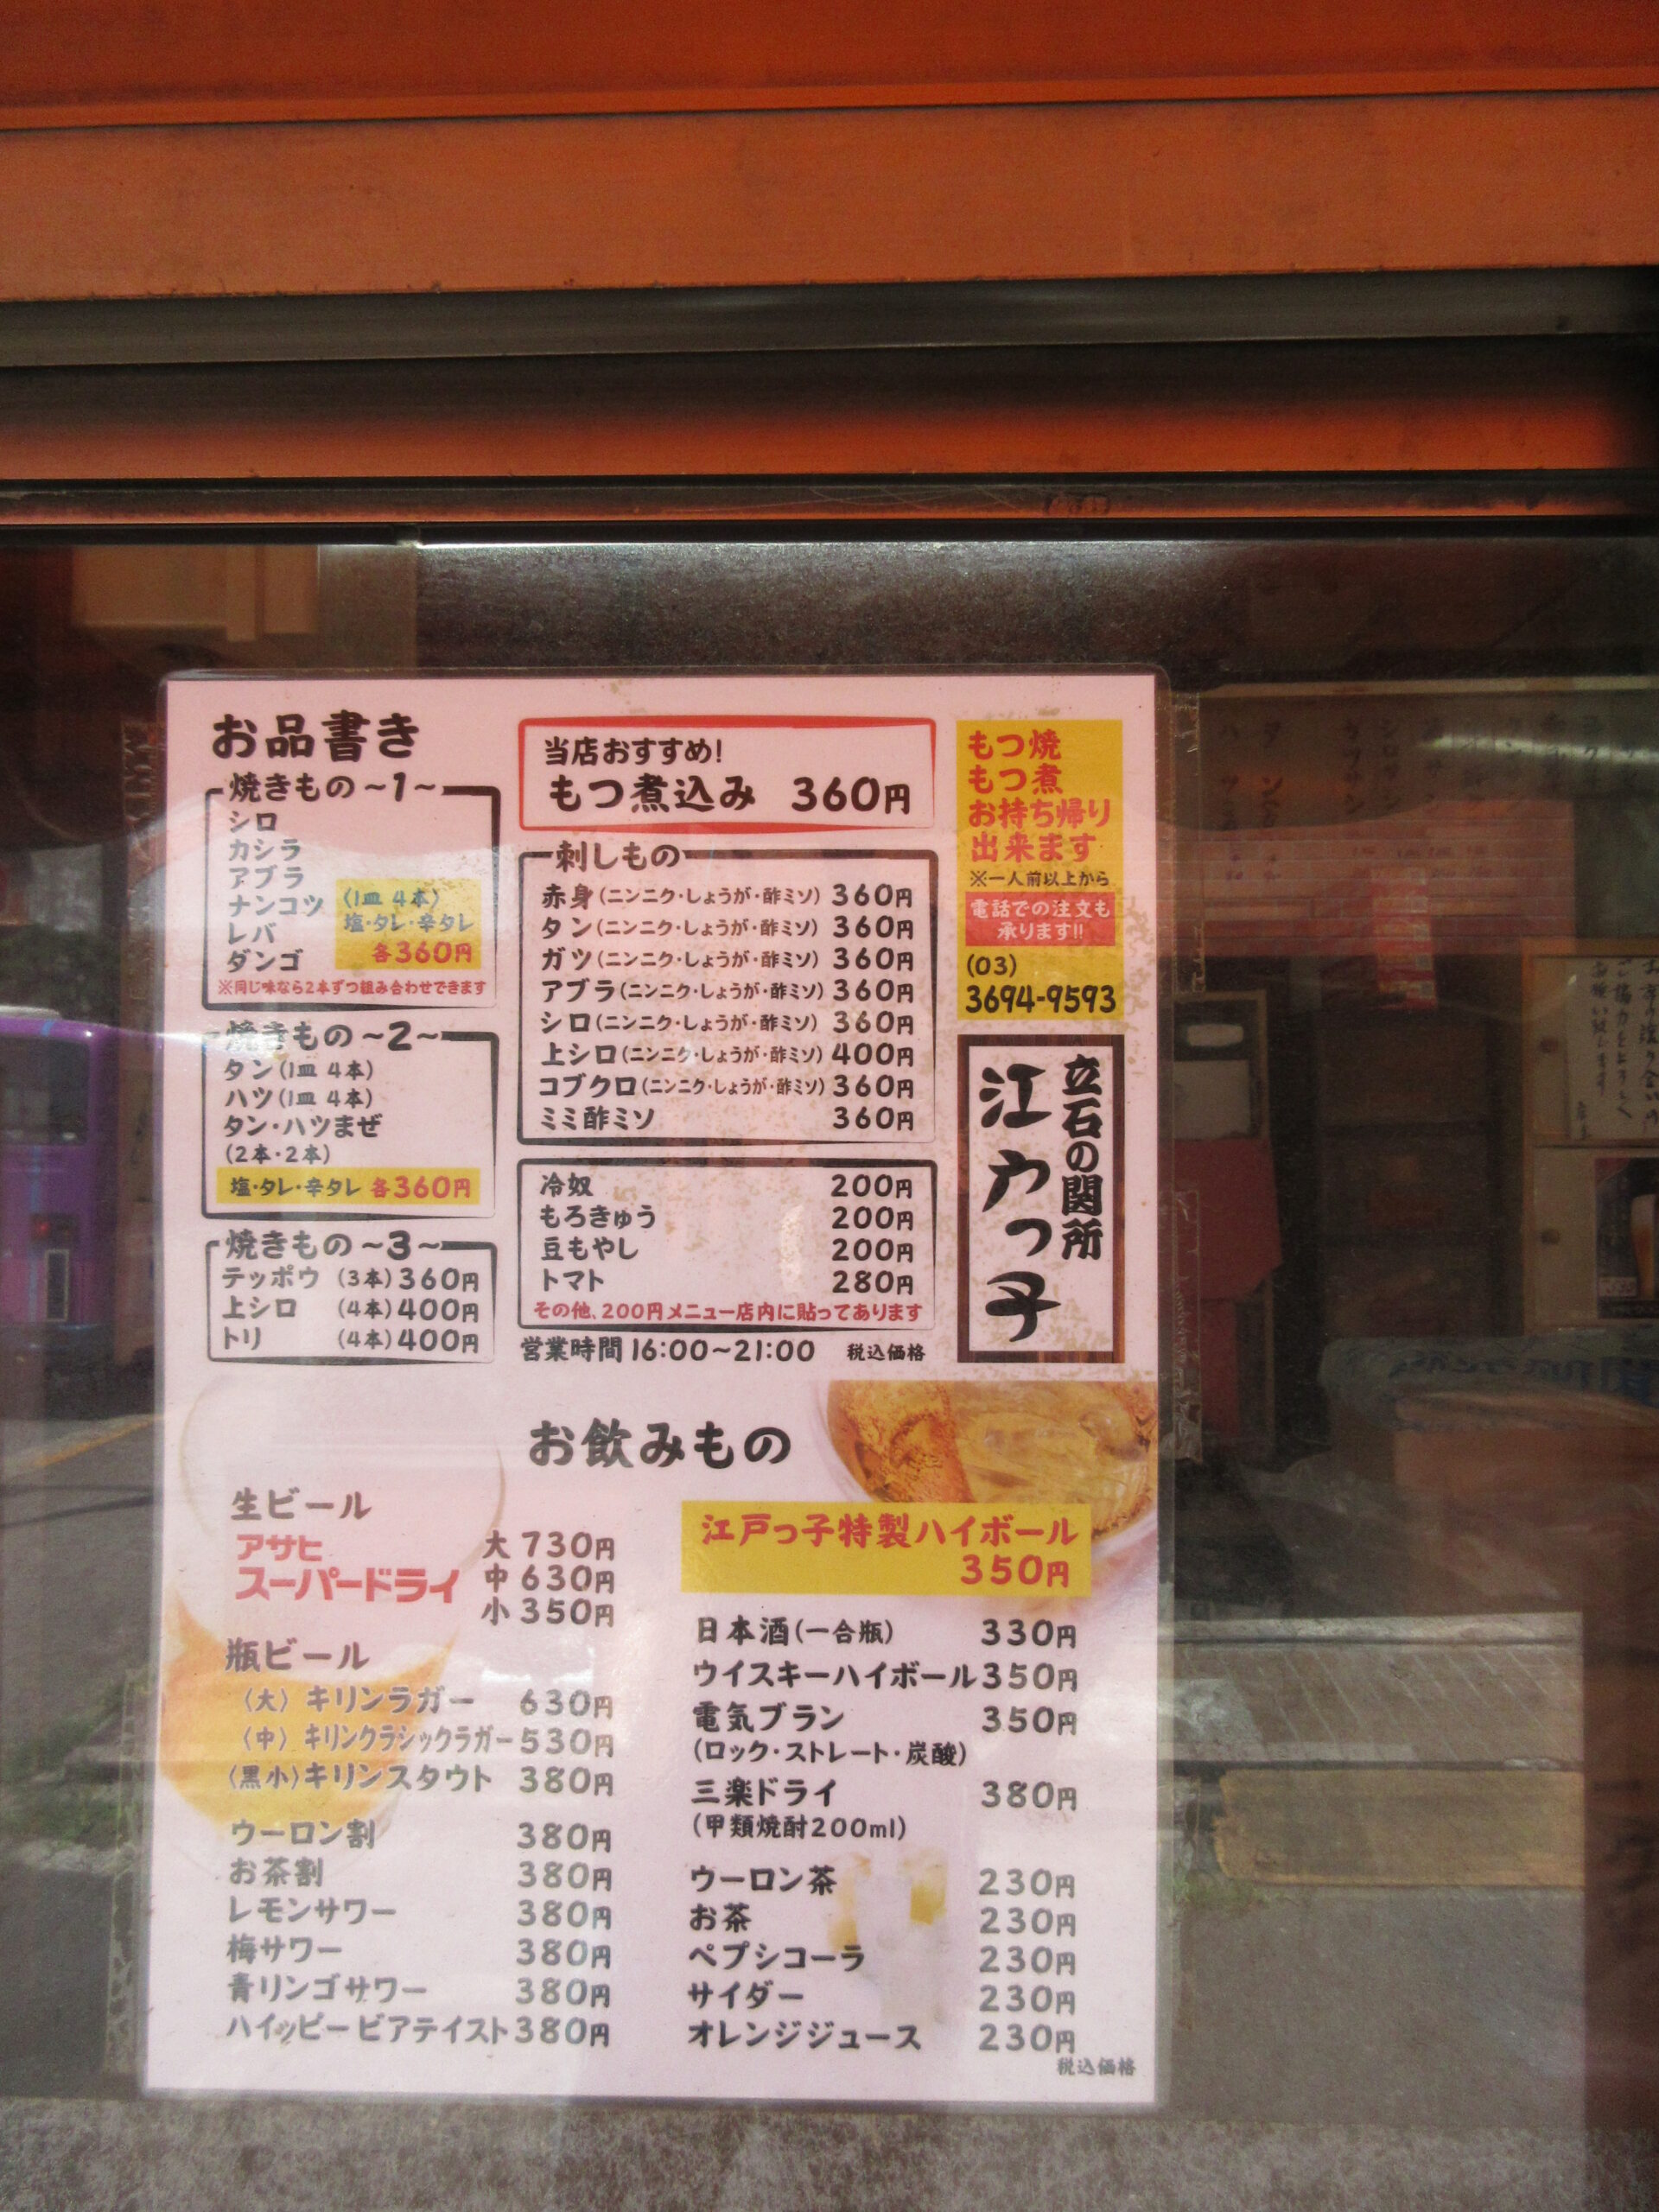 お品書き
焼きもの ~1~
シロ
カシラ
アブラ
ナンコツ
レバ
ダンゴ
(1皿 4本)
塩・タレ・辛タレ
各360円
※同じ味なら2本ずつ組み合わせできます
焼きもの ~2~
タン(1皿 4本)
ハツ(1皿 4本)
タン・ハツまぜ
(2本・2本)
塩・タレ・辛タレ 各360円
焼きもの ~3~
テッポウ (3本)360円
上シロ (4本)400円
トリ (4本)400円
当店おすすめ!
もつ煮込み 360円
刺しもの
赤身(ニンニク・しょうが・酢ミソ) 360円
タン(ニンニク・しょうが・酢ミソ) 360円
ガツ(ニンニク・しょうが・酢ミソ) 360円
アブラ(ニンニク・しょうが・酢ミソ) 360円
シロ(ニンニク・しょうが・酢ミソ) 360円
上シロ(ニンニク・しょうが・酢ミソ) 400円
コブクロ(ニンニク・しょうが・酢ミソ) 360円
ミミ酢ミソ 360円
冷奴 200円
もろきゅう 200円
豆もやし 200円
トマト 280円
その他、200円メニュー店内に貼ってあります
営業時間 16:00~21:00 税込価格
もつ焼
もつ煮
お持ち帰り
出来ます
※一人前以上から
電話での注文も
承ります!!
(03)
3694-9593
立石の関所
江戸っ子
お飲みもの
生ビール
アサヒ
スーパードライ
大 730円
中 630円
小 350円
瓶ビール
〈大〉キリンラガー 630円
〈中〉キリンクラシックラガー 530円
〈黒小〉キリンスタウト 380円
ウーロン割 380円
お茶割 380円
レモンサワー 380円
梅サワー 380円
青リンゴサワー 380円
ハイッピービアテイスト 380円
江戸っ子特製ハイボール
350円
日本酒(一合瓶) 330円
ウイスキーハイボール 350円
電気ブラン 350円
(ロック・ストレート・炭酸)
三楽ドライ 380円
(甲類焼酎200ml)
ウーロン茶 230円
お茶 230円
ペプシコーラ 230円
サイダー 230円
オレンジジュース 230円
税込価格